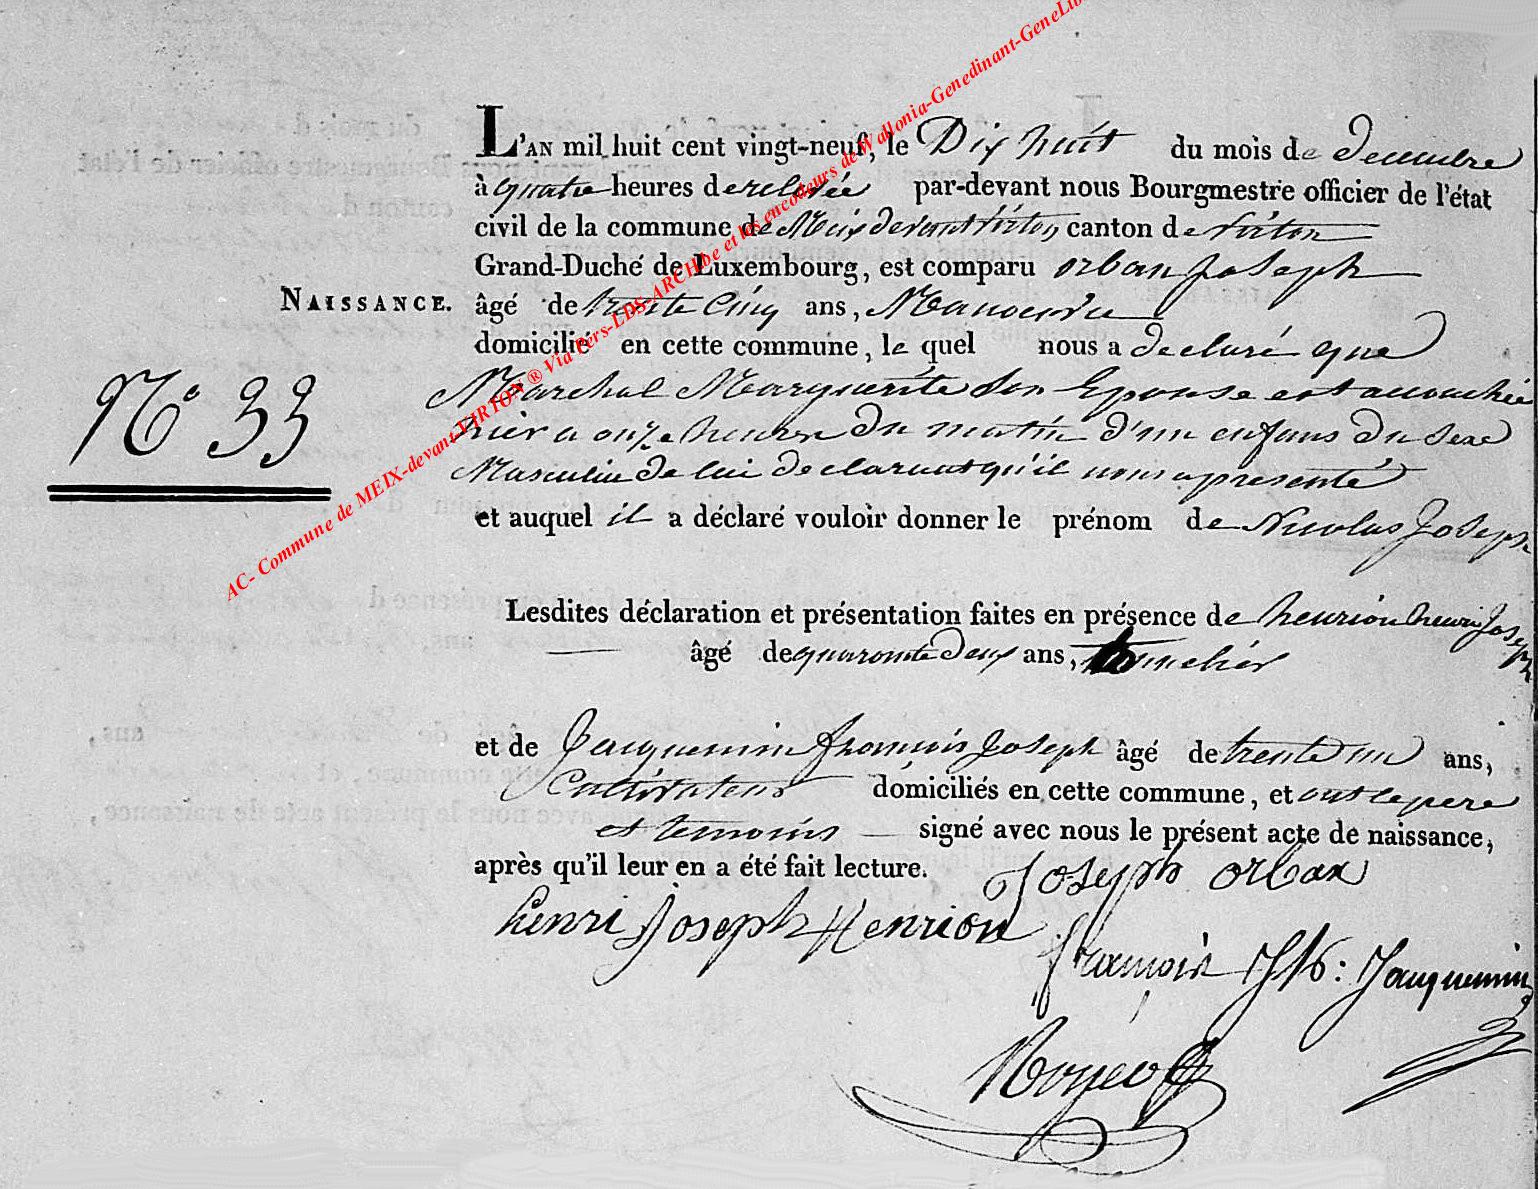 L'AN mil huit cent vingt-neuf, le Dix huit du mois de decembre
à quatre heures de relevée par-devant nous Bourgmestre officier de l'état
civil de la commune de Meix devant virton canton de virton
Grand-Duché de Luxembourg, est comparu orban Joseph
NAISSANCE. âgé de trente cinq ans, Manoeuvre
domicilié en cette commune, le quel nous a declaré que
N° 33
Marchal Marguerite son Epouse est accouchée
hier a onze heures du matin d'un enfans du sexe
Masculin de lui declarant qu'il nous a presenté
et auquel il a déclaré vouloir donner le prénom de Nicolas Joseph
Lesdites déclaration et présentation faites en présence de henrion henri Joseph
âgé de quarante deux ans, tonnelier
et de Jacquemin françois Joseph âgé de trente un ans,
Cultivateur domiciliés en cette commune, et ont le pere
et temoins signé avec nous le présent acte de naissance,
après qu'il leur en a été fait lecture. Joseph orban
henri Joseph Henrion
françois Jh : Jacquemin
AC- Commune de MEIX-devant-VIRTON ® Via Pers-LDS-ARCH.be et les encodeurs de Wallonia-Genedinant-GeneLib